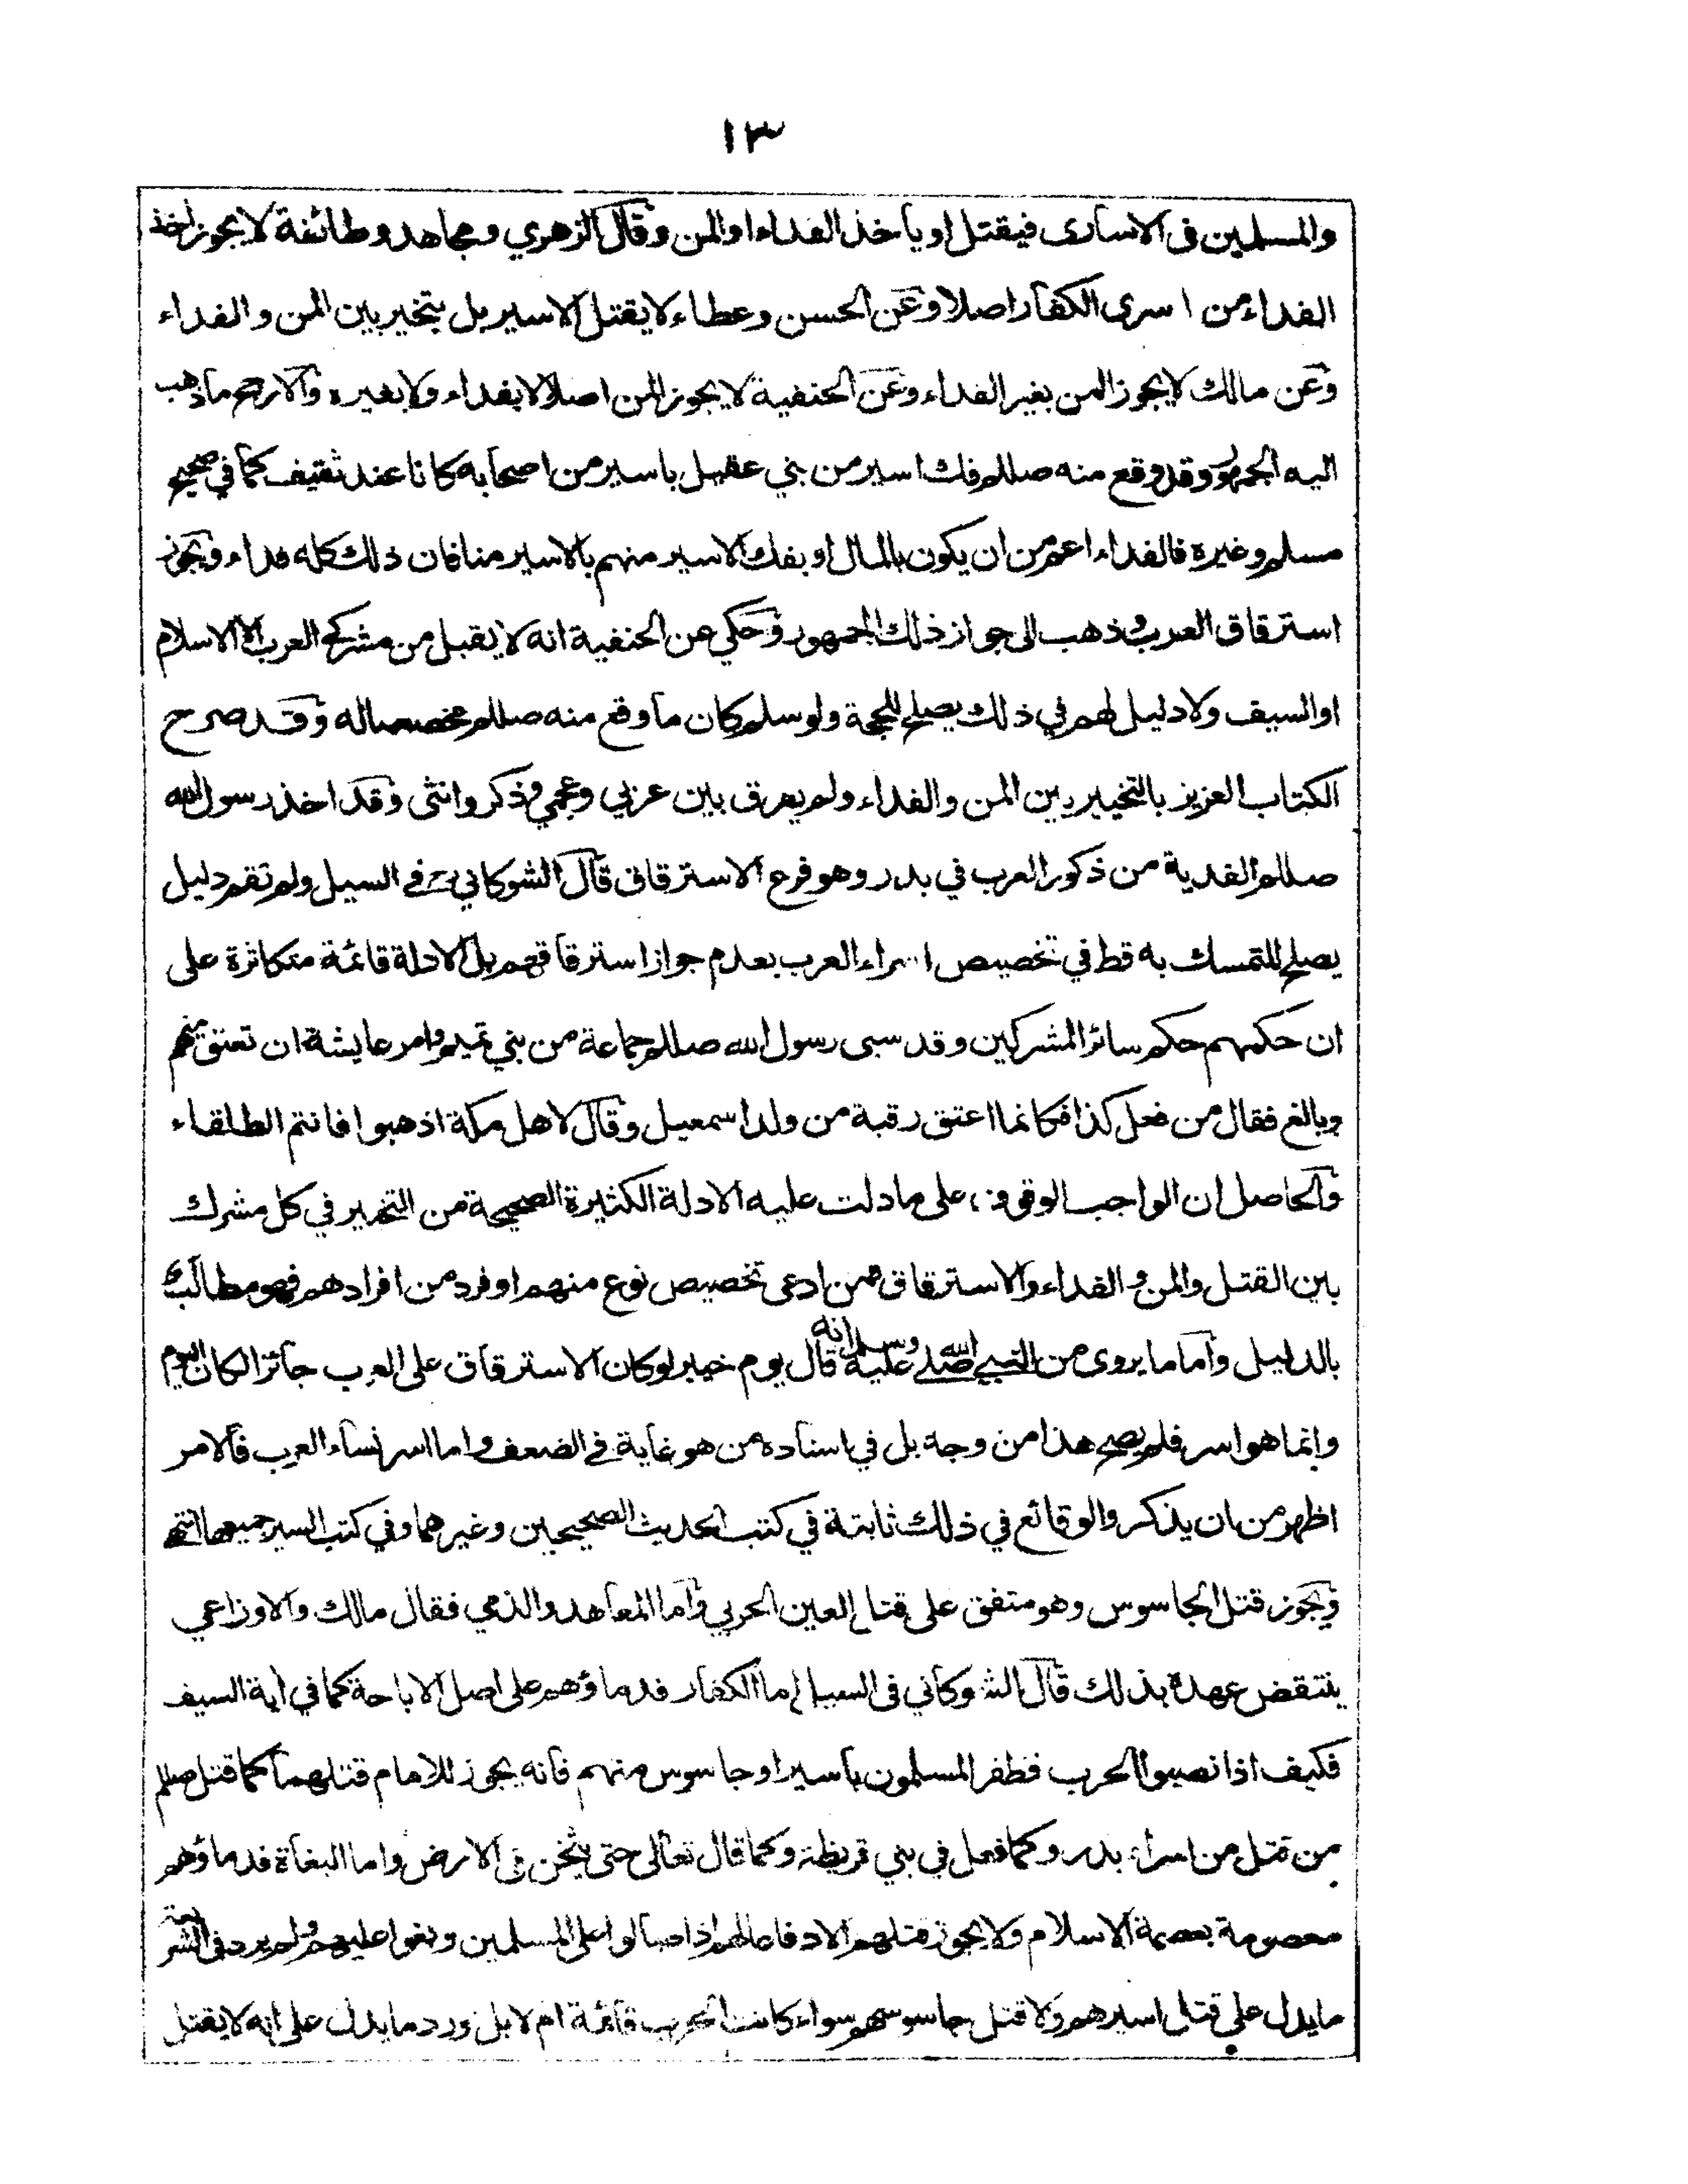 ١٣
والمسلمين فى الاسارى فيقتل او ياخذ الفداء او المن وقال الزهري ومجاهد وطائفة لا يجوز اخذ
الفداء من اسرى الكفار اصلا وعن الحسن وعطاء لا يقتل الاسير بل يتخير بين المن والفداء
وعن مالك لا يجوز المن بغير الفداء وعن الحنفية لا يجوز المن اصلا لا بفداء ولا بغيره والارجح ما ذهب
اليه الجمهور وقد وقع منه صللم فك اسير من بني عقيل باسير من اصحابه كانا عند ثقيف كما في صحيح
مسلم وغيره فالفداء اعم من ان يكون بالمال او بفك الاسير منهم بالاسير منا فان ذلك كله فداء ويجوز
استرقاق العرب وذهب الى جواز ذلك الجمهور وحكي عن الحنفية انه لا يقبل من مشركي العرب الا الاسلام
او السيف ولا دليل لهم في ذلك يصلح للحجة ولو سلم كان ما وقع منه صللم مخصصا له وقد صرح
الكتاب العزيز بالتخيير بين المن والفداء ولم يفرق بين عربي وعجمي وذكر وانثى وقد اخذ رسول الله
صللم الفدية من ذكور العرب في بدر وهو فرع الاسترقاق قال الشوكاني رح في السيل ولم تقم دليل
يصلح للتمسك به قط في تخصيص اسراء العرب بعدم جواز استرقاقهم بل الادلة قائمة متكاثرة على
ان حكمهم حكم سائر المشركين وقد سبى رسول الله صللم جماعة من بني تميم وامر عايشة ان تعتق منهم
وبالغ فقال من فعل كذا فكانما اعتق رقبة من ولد اسمعيل وقال لاهل مكة اذهبوا فانتم الطلقاء
والحاصل ان الواجب الوقوف على ما دلت عليه الادلة الكثيرة الصحيحة من التخيير في كل مشرك
بين القتل والمن والفداء والاسترقاق فمن ادعى تخصيص نوع منهم او فرد من افرادهم فهو مطالب
بالدليل واما ما يروى من النبي صلى الله عليه وسلم انه قال يوم خيبر لو كان الاسترقاق على العرب جائزا لكان اليوم
وانما هو اسر فلم يصح هذا من وجه بل في اسناده من هو غاية في الضعف واما اسر نساء العرب فالامر
اظهر من ان يذكر والوقائع في ذلك ثابتة في كتب الحديث الصحيحين وغيرهما وفي كتب السير جميعها انتهى
ويجوز قتل الجاسوس وهو متفق على قتل العين الحربي واما المعاهد والذمي فقال مالك والاوزاعي
ينتقض عهده بذلك قال الشوكاني فى السيل اما الكفار فدماؤهم على اصل الاباحة كما في اية السيف
فكيف اذا نصبوا الحرب فظفر المسلمون باسير او جاسوس منهم فانه يجوز للامام قتلهما كما قتل صللم
من قتل من اسراء بدر وكما فعل في بني قريظة وكما قال تعالى حتى يثخن في الارض واما البغاة فدماؤهم
معصومة بعصمة الاسلام ولا يجوز قتلهم الا دفعا لهم اذا صالوا على المسلمين وبغوا عليهم ولم يرد فى الشريعة
ما يدل على قتل اسيرهم ولا قتل جاسوسهم سواء كانت الحرب قائمة ام لا بل ورد ما يدل على انه لا يقتل